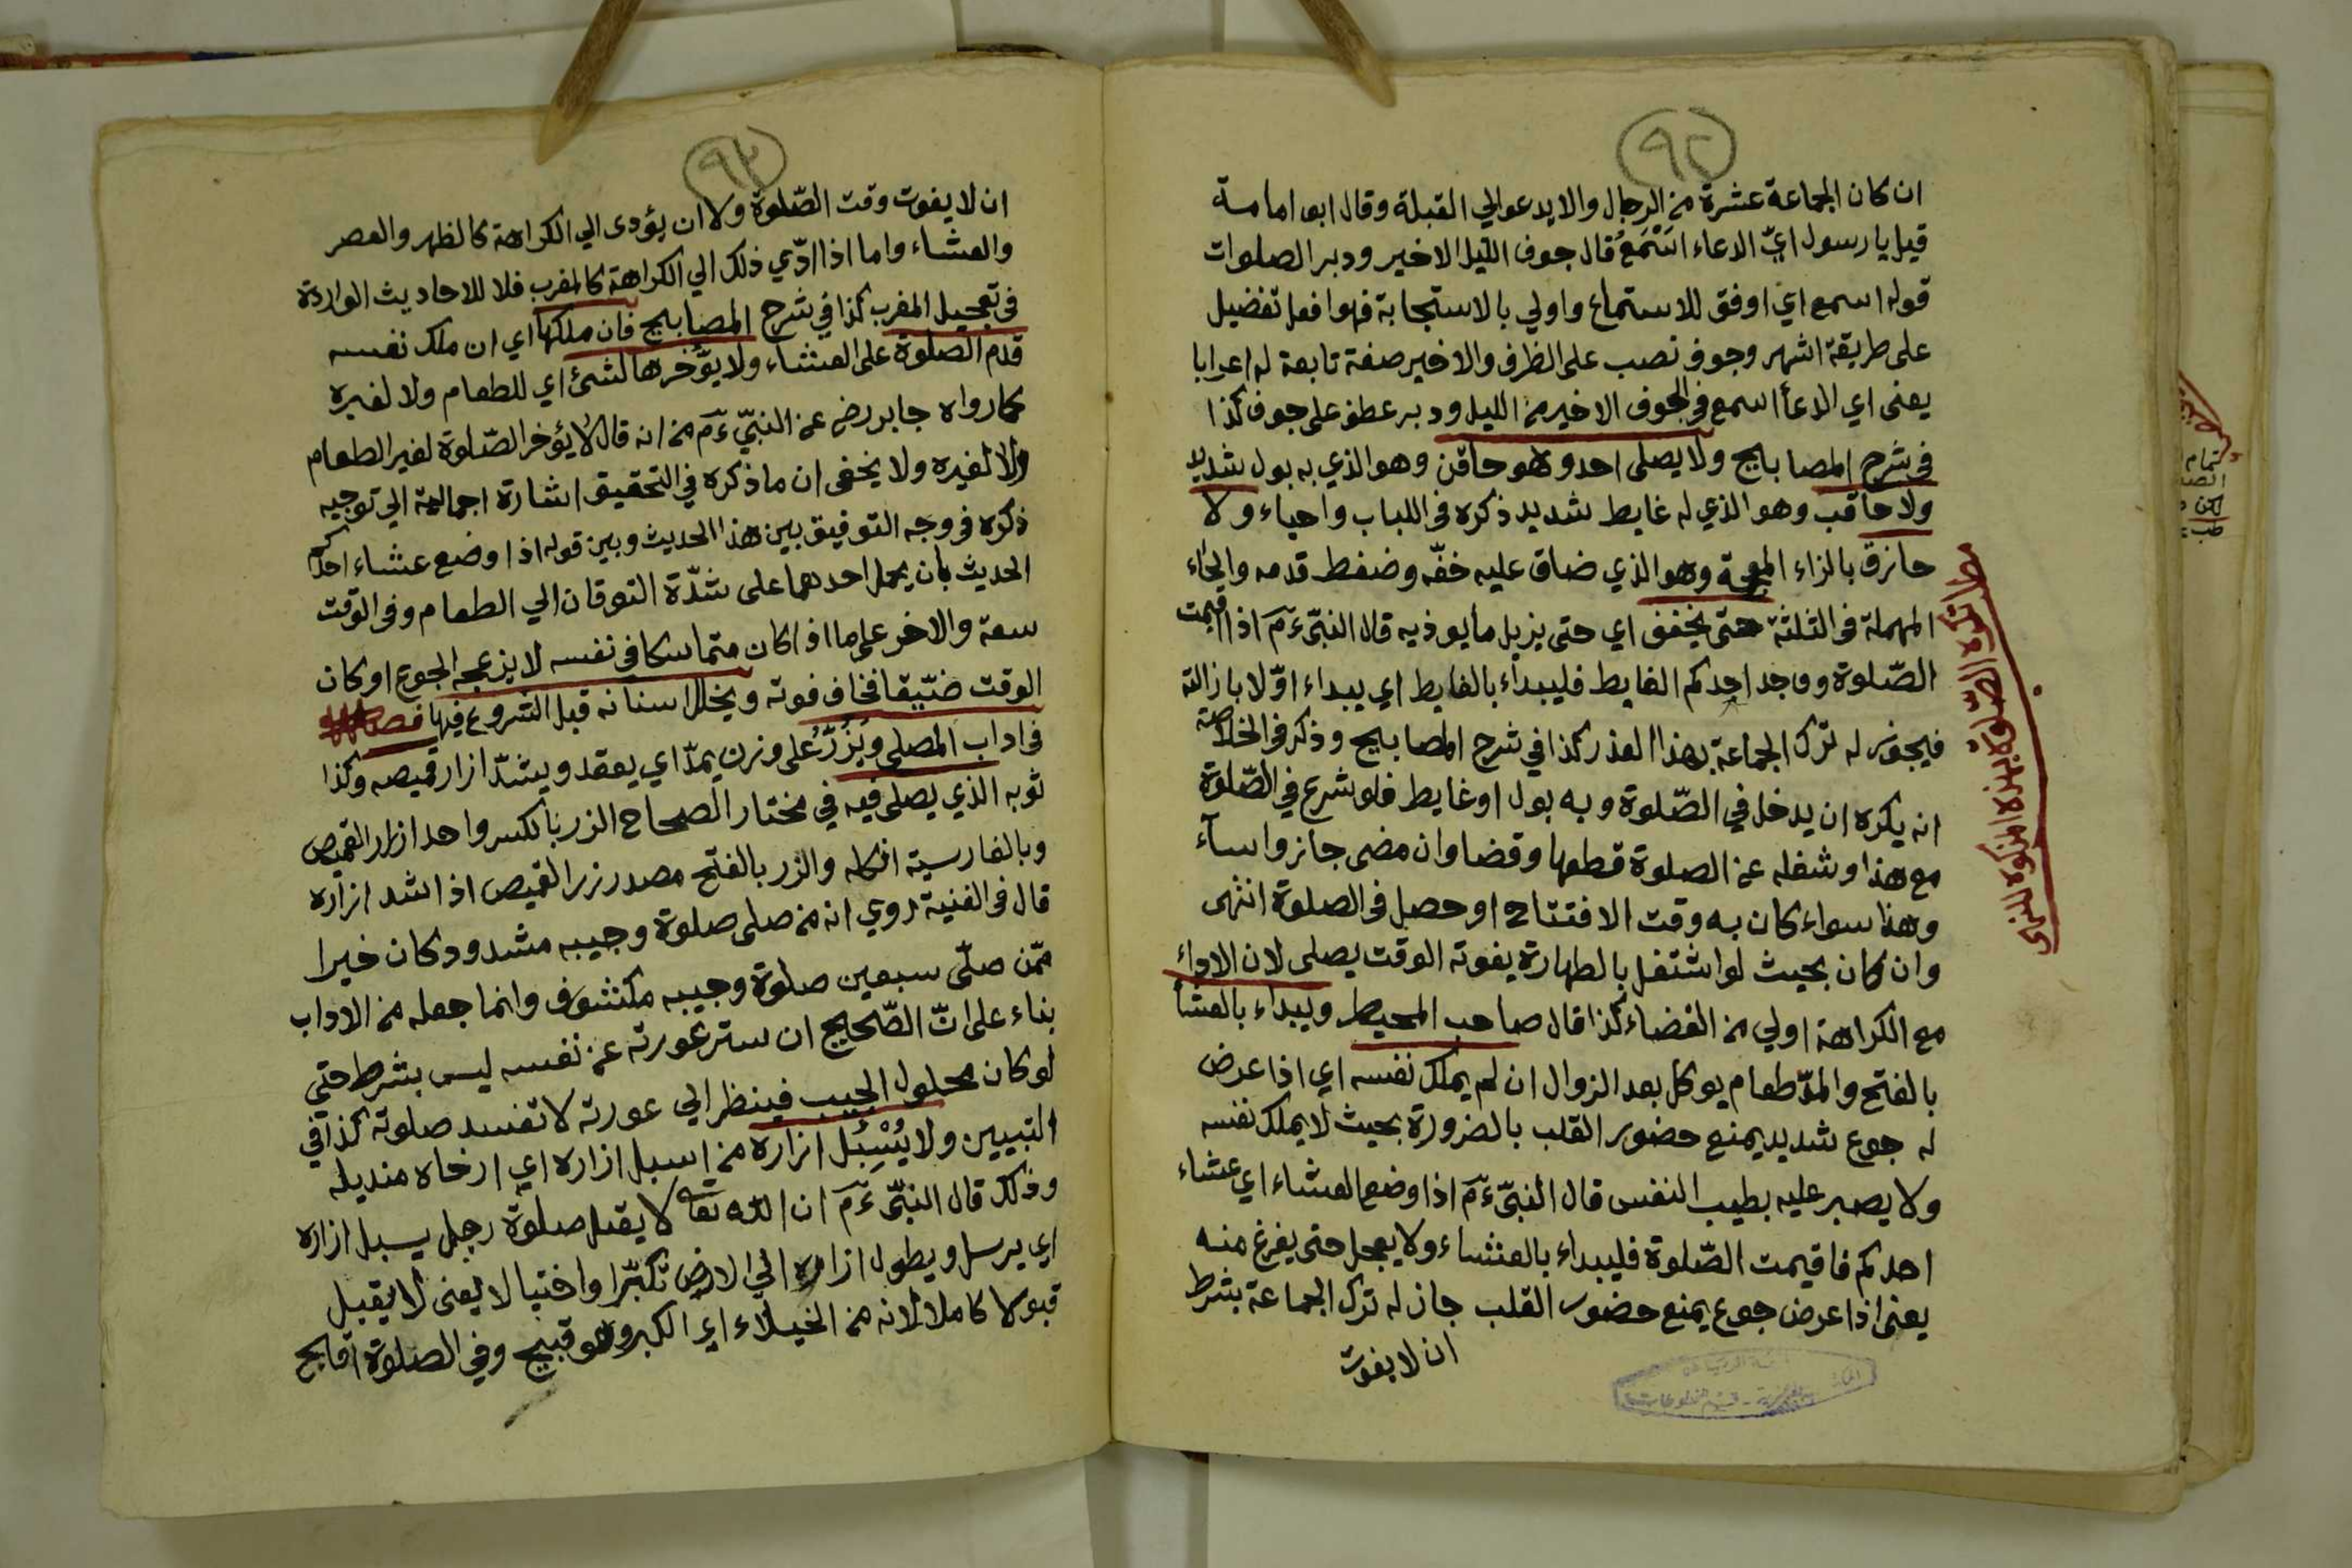 ٩٢
ان كان الجماعة عشرة من الرجال والا يدعو الي القبلة وقال ابو امامة
قيل يا رسول ايّ الدعاء اسْتَمَعُ قال جوف الليل الاخير ودبر الصلوات
قوله اسمع اي اوفق للاستماع واولي بالاستجابة فهو افعل تفضيل
على طريقة اشهر وجوف نصب على الظرف والاخير صفة تابعة له اعرابا
يعنى اي الدعأ اسمع في الجوف الاخير من الليل ودبر عطف على جوف كذا
فى شرح المصابايح ولا يصلى احد وهو حاقن وهو الذي به بول شديد
ولا حاقب وهو الذي له غايط شديد ذكره فى اللباب واحياء ولا
حازق بالزاء المعجمة وهو الذي ضاق عليه خفّه وضغط قدمه والحاء
المهملة فى الثلثة حتى يخفف اي حتى يزيل ما يوذيه قال النبىّ ءَمَ اذا اقيمت
الصّلوة ووجد احدكم الغايط فليبداء بالغايط اي يبداء اوّلا بازالته
فيجوز له ترك الجماعة بهذا العذر كذا في شرح المصابيح وذكر فى الخلاصة
انه يكره ان يدخل في الصّلوة وبه بول او غايط فلو شرع في الصّلوة
مع هذا وشغله عن الصلوة قطعها وقضا وان مضى جاز واسآء
وهذا سواء كان به وقت الافتتاح او حصل فى الصلوة انتهى
وان كان بحيث لو اشتغل بالطهارة يفوته الوقت يصلى لان الاداء
مع الكراهة اولي من القضاء كذا قال صاحب المحيط ويبداء بالعشا
بالفتح والمدّ طعام يوكل بعد الزوال ان لم يملك نفسه اي اذا عرض
له جوع شديد يمنع حضور القلب بالضرورة بحيث لا يملك نفسه
ولا يصبر عليه بطيب النفس قال النبىّ ءَمَ اذا وضع العشاء اي عشاء
احدكم فاقيمت الصّلوة فليبداء بالعشاء ولا يعجل حتى يفرغ منه
يعنى اذا عرض جوع يمنع حضور القلب جاز له ترك الجماعة بشرط
ان لا يفوت
مطلب تكره الصّلوة بهذه المذكورة
٩٣
ان لا يفوت وقت الصّلوة ولا ان يؤدى الي الكراهة كالظهر والعصر
والعشاء واما اذا ادّي ذلك الي الكراهة كالمغرب فلا للاحاديث الواردة
فى تعجيل المغرب كذا في شرح المصابيح فان ملكها اي ان ملك نفسه
قدم الصلوة على العشاء ولا يؤخرها لشئ اي للطعام ولا لغيره
كما رواه جابر رض عن النبىّ ءَمَ من انه قال لا يؤخر الصّلوة لغير الطعام
ولا لغيره ولا يخفى ان ما ذكره في التحقيق اشارة اجمالية الي توجيه
ذكره فى وجه التوفيق بين هذا الحديث وبين قوله اذا وضع عشاء احدكم
الحديث بان يحمل احدهما على شدّة التوقان الي الطعام وفى الوقت
سعة والاخر على ما اذا كان متماسكا فى نفسه لا يزعجه الجوع او كان
الوقت ضيّقا فخاف فوته ويخلل اسنانه قبل الشروع فيها فصل
فى اداب المصلى ويَزُرُّ على وزن يمدّ اي يعقد ويشدّ ازار قميصه وكذا
ثوبه الذي يصلى فيه في مختار الصحاح الزر بالكسر واحد ازرار القميص
وبالفارسية انكله والزر بالفتح مصدر زر القميص اذا شد ازراره
قال فى القنية روي انه من صلى صلوة وجيبه مشدود كان خيرا
ممّن صلّى سبعين صلوة وجيبه مكشوف وانما جعله من الاداب
بناء على انّ الصّحيح ان ستر عورته عن نفسه ليس بشرط حتى
لو كان محلول الجيب فينظر الي عورته لا تفسد صلوته كذا في
التبيين ولا يُسْبِلُ ازاره من اسبل ازاره اي ارخاه منديله
وذلك قال النبىّ ءَمَ ان اللّه تعا لا يقبل صلوة رجل يسبل ازاره
اي يرسل ويطول ازاره الي الارض تكبّرا واختيالا يعنى لا يقبل
قبولا كاملا لانه من الخيلاء اي الكبر وهو قبيح وفي الصلوة اقبح